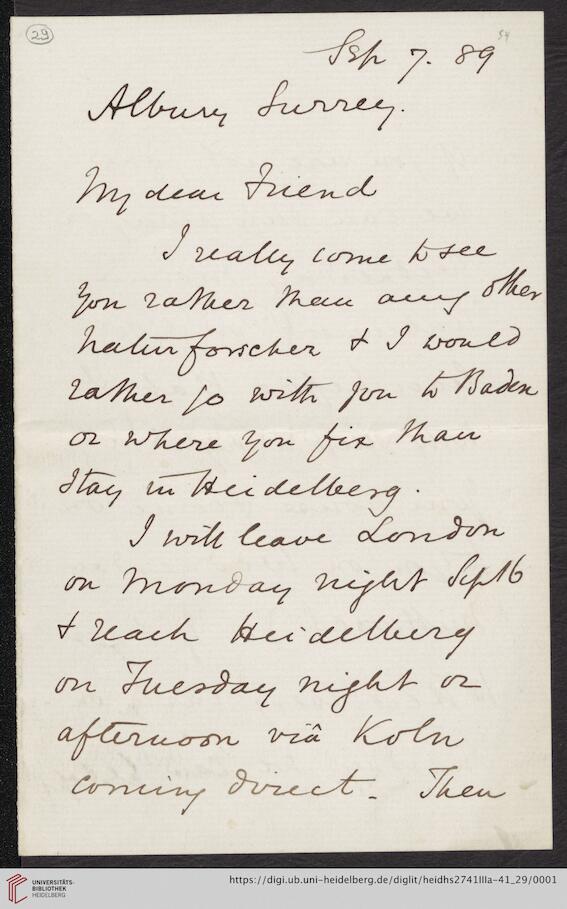 29
54
Sep 7. 89
Albury Surrey.
My dear Friend
I really come to see
you rather than any other
Naturforscher & I would
rather go with you to Baden
or where you fix than
stay in Heidelberg.
I will leave London
on Monday night Sept 16
& reach Heidelberg
on Tuesday night or
afternoon viâ Koln
coming direct. Then
UNIVERSITÄTS-
BIBLIOTHEK
HEIDELBERG
https://digi.ub.uni-heidelberg.de/diglit/heidhs2741IIIa-41_29/0001